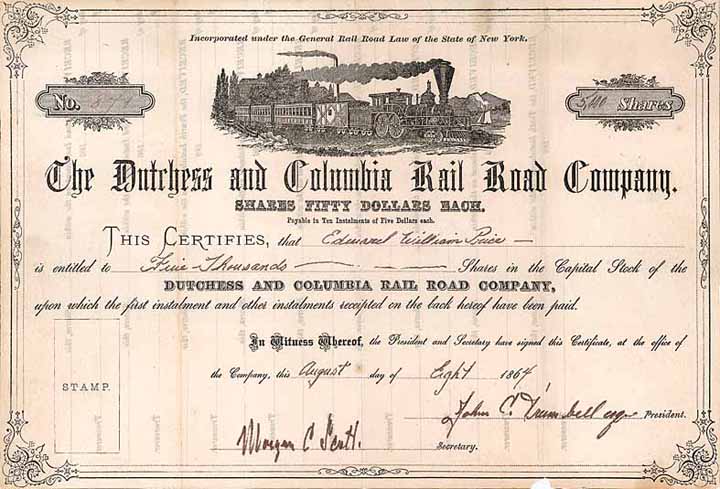 Incorporated under the General Rail Road Law of the State of New York.
No.
Shares
The Dutchess and Columbia Rail Road Company.
SHARES FIFTY DOLLARS EACH.
Payable in Ten Instalments of Five Dollars each.
THIS CERTIFIES, that Edward William Price
is entitled to Five Thousands Shares in the Capital Stock of the
DUTCHESS AND COLUMBIA RAIL ROAD COMPANY,
upon which the first instalment and other instalments receipted on the back hereof have been paid.
In Witness Whereof, the President and Secretary have signed this Certificate, at the office of
the Company, this August day of Eight 1864
STAMP.
John C. Trumbell President.
Morgan C Scott. Secretary.